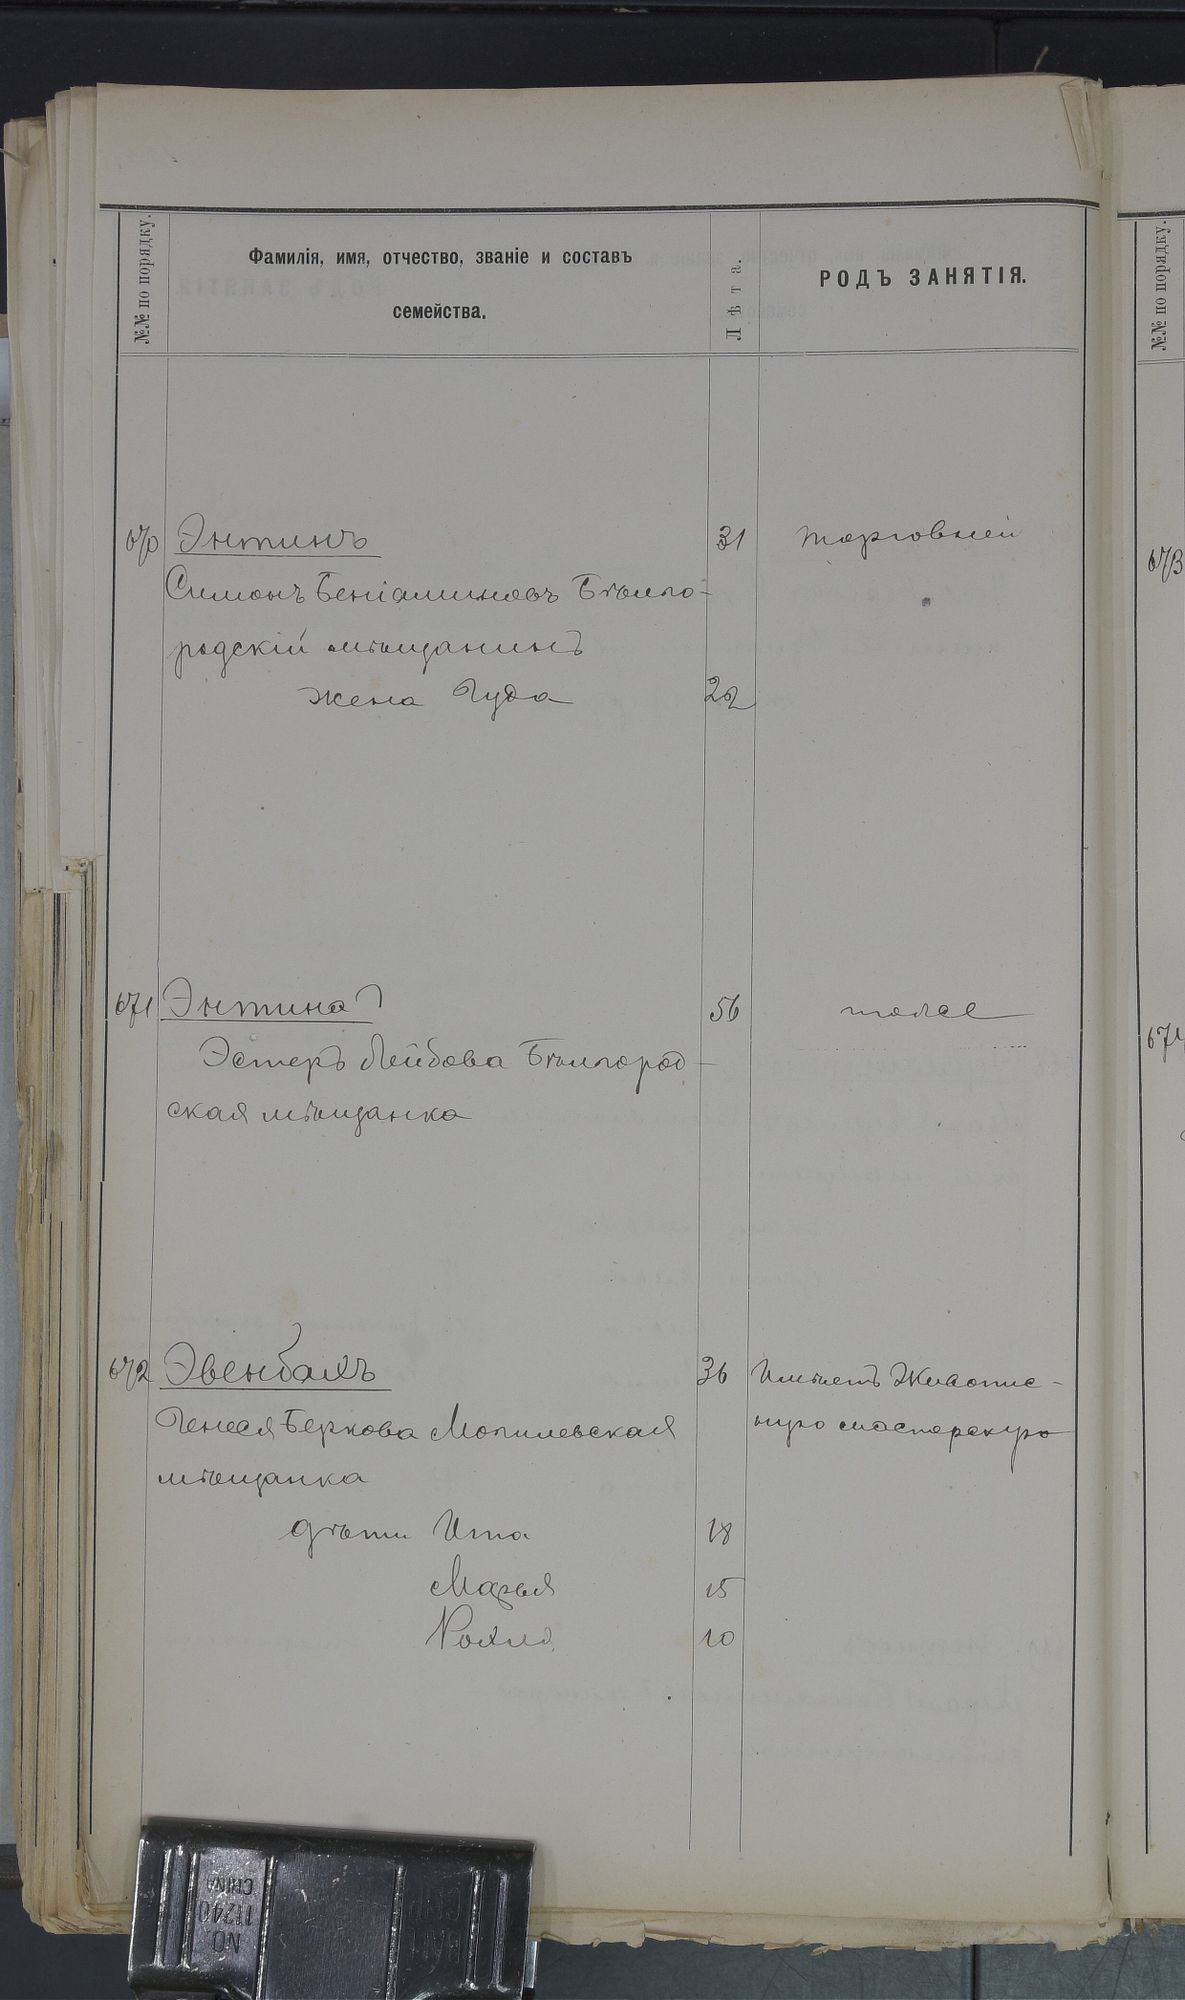 №№ по порядку.
Фамилія, имя, отчество, званіе и составъ
семейства.
Лѣта.
РОДЪ ЗАНЯТІЯ.
№№ по порядку.
670 Энтинъ 31 торговлей
Симонъ Беніаминовъ Бѣлго-
родскій мѣщанинъ
жена Гуда 22
673
671 Энтина 56 тоже
Эстеръ Лейбова Бѣлгород-
ская мѣщанка
674
672 Эвенбахъ 36 Имѣетъ Живопис-
Генеся Беркова Могилевская ную мастерскую
мѣщанка
дѣти Ита 18
Марья 15
Рохля 10
NO
11240
CHINA